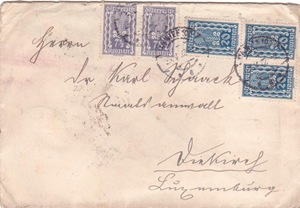 Herrn
Dr. Karl Schaack
Staatsanwalt
Diekirch
Luxemburg